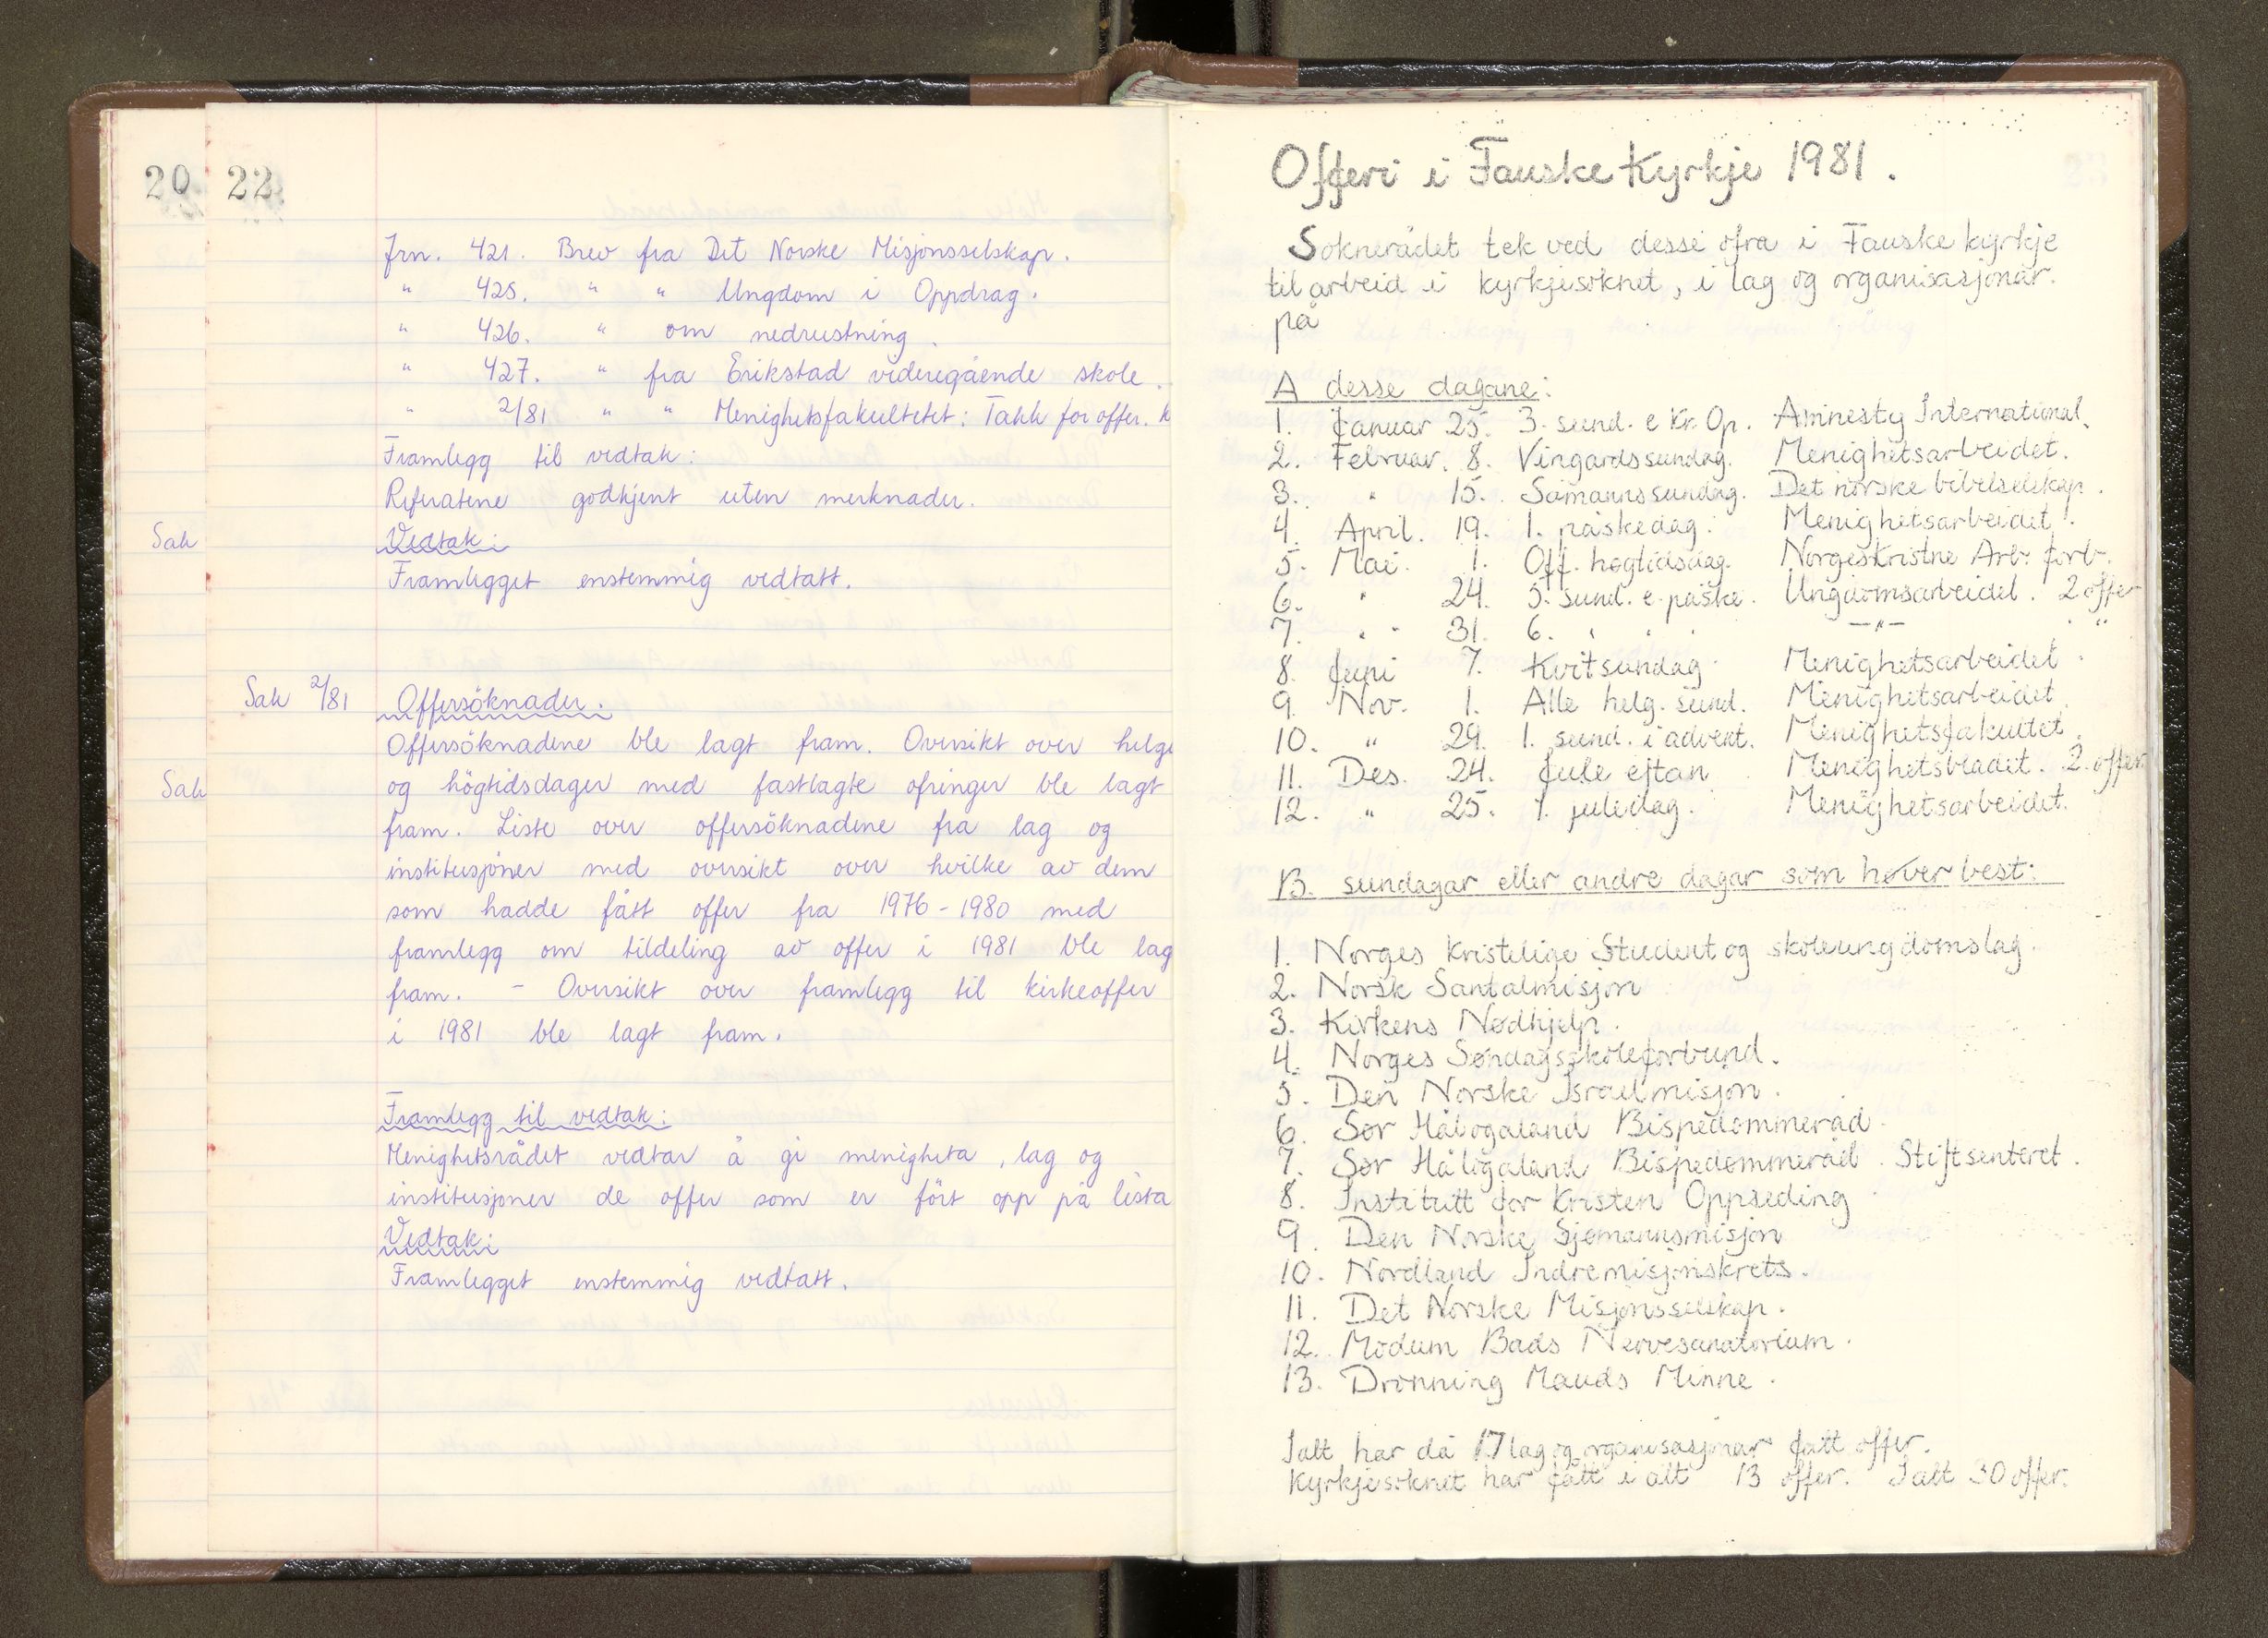 20
Sak
Sak
22
Jrn. 421. Brev fra Det Norske Misjonsselskap.
" 425. " " Ungdom i Oppdrag.
" 426. " om nedrustning.
" 427. " fra Erikstad videregående skole.
" 2/81 " " Menighetsfakultetet: Takk for offer. k
Framlegg til vedtak:
Referatene godkjent uten merknader.
Vedtak:
Framlegget enstemmig vedtatt.
Sak 2/81 Offersöknader.
Offersöknadene ble lagt fram. Oversikt over helge
og högtidsdager med fastlagte ofringer ble lagt
fram. Liste over offersöknadene fra lag og
institusjoner med oversikt over hvilke av dem
som hadde fått offer fra 1976-1980 med
framlegg om tildeling av offer i 1981 ble lag
fram. - Oversikt over framlegg til kirkeoffer
i 1981 ble lagt fram.
Framlegg til vedtak:
Menighetsrådet vedtar å gi menigheta, lag og
institusjoner de offer som er fört opp på lista
Vedtak:
Framlegget enstemmig vedtatt.
Offeri i Fauske Kyrkje 1981.
Soknerådet tek ved desse ofra i Fauske kyrkje
til arbeid i kyrkjesoknet, i lag og organisasjonar.
på
A desse dagane:
1. Januar 25. 3. sund. e Kr. Op. Amnesty International.
2. Februar. 8. Vingardssundag. Menighetsarbeidet.
3. " 15. Såmannssundag. Det norske bibelselskap.
4. April. 19. 1. påskedag. Menighetsarbeidet.
5. Mai. 1. Off. høgtidsdag. Norges Kristne Arb. forb.
6. " 24. 5. sund. e. påske. Ungdomsarbeidet. 2 offer
7. " 31. 6. " " " —"— " "
8. Juni 7. Kvitsundag. Menighetsarbeidet.
9. Nov. 1. Alle helg. sund. Menighetsarbeidet
10. " 29. 1. sund. i advent. Menighetsfakultet.
11. Des. 24. Jule eftan Menighetsbladet. 2. offer.
12. " 25. 1. juledag. Menighetsarbeidet.
B. sundagar eller andre dagar som høver best:
1. Norges Kristelige Student og skoleungdomslag.
2. Norsk Santalmisjon
3. Kirkens Nødhjelp.
4. Norges Søndagsskoleforbund.
5. Den Norske Israelmisjon.
6. Sør Hålogaland Bispedømmeråd.
7. Sør Hålogaland Bispedømmeråd. Stiftsenteret.
8. Institutt for Kristen Oppseding
9. Den Norske Sjømannsmisjon
10. Nordland Indremisjonskrets.
11. Det Norske Misjonsselskap.
12. Modum Bads Nervesanatorium.
13. Dronning Mauds Minne.
Ialt har då 17 lag og organisasjonar fått offer.
Kyrkjesoknet har fått i alt 13 offer. Ialt 30 offer.